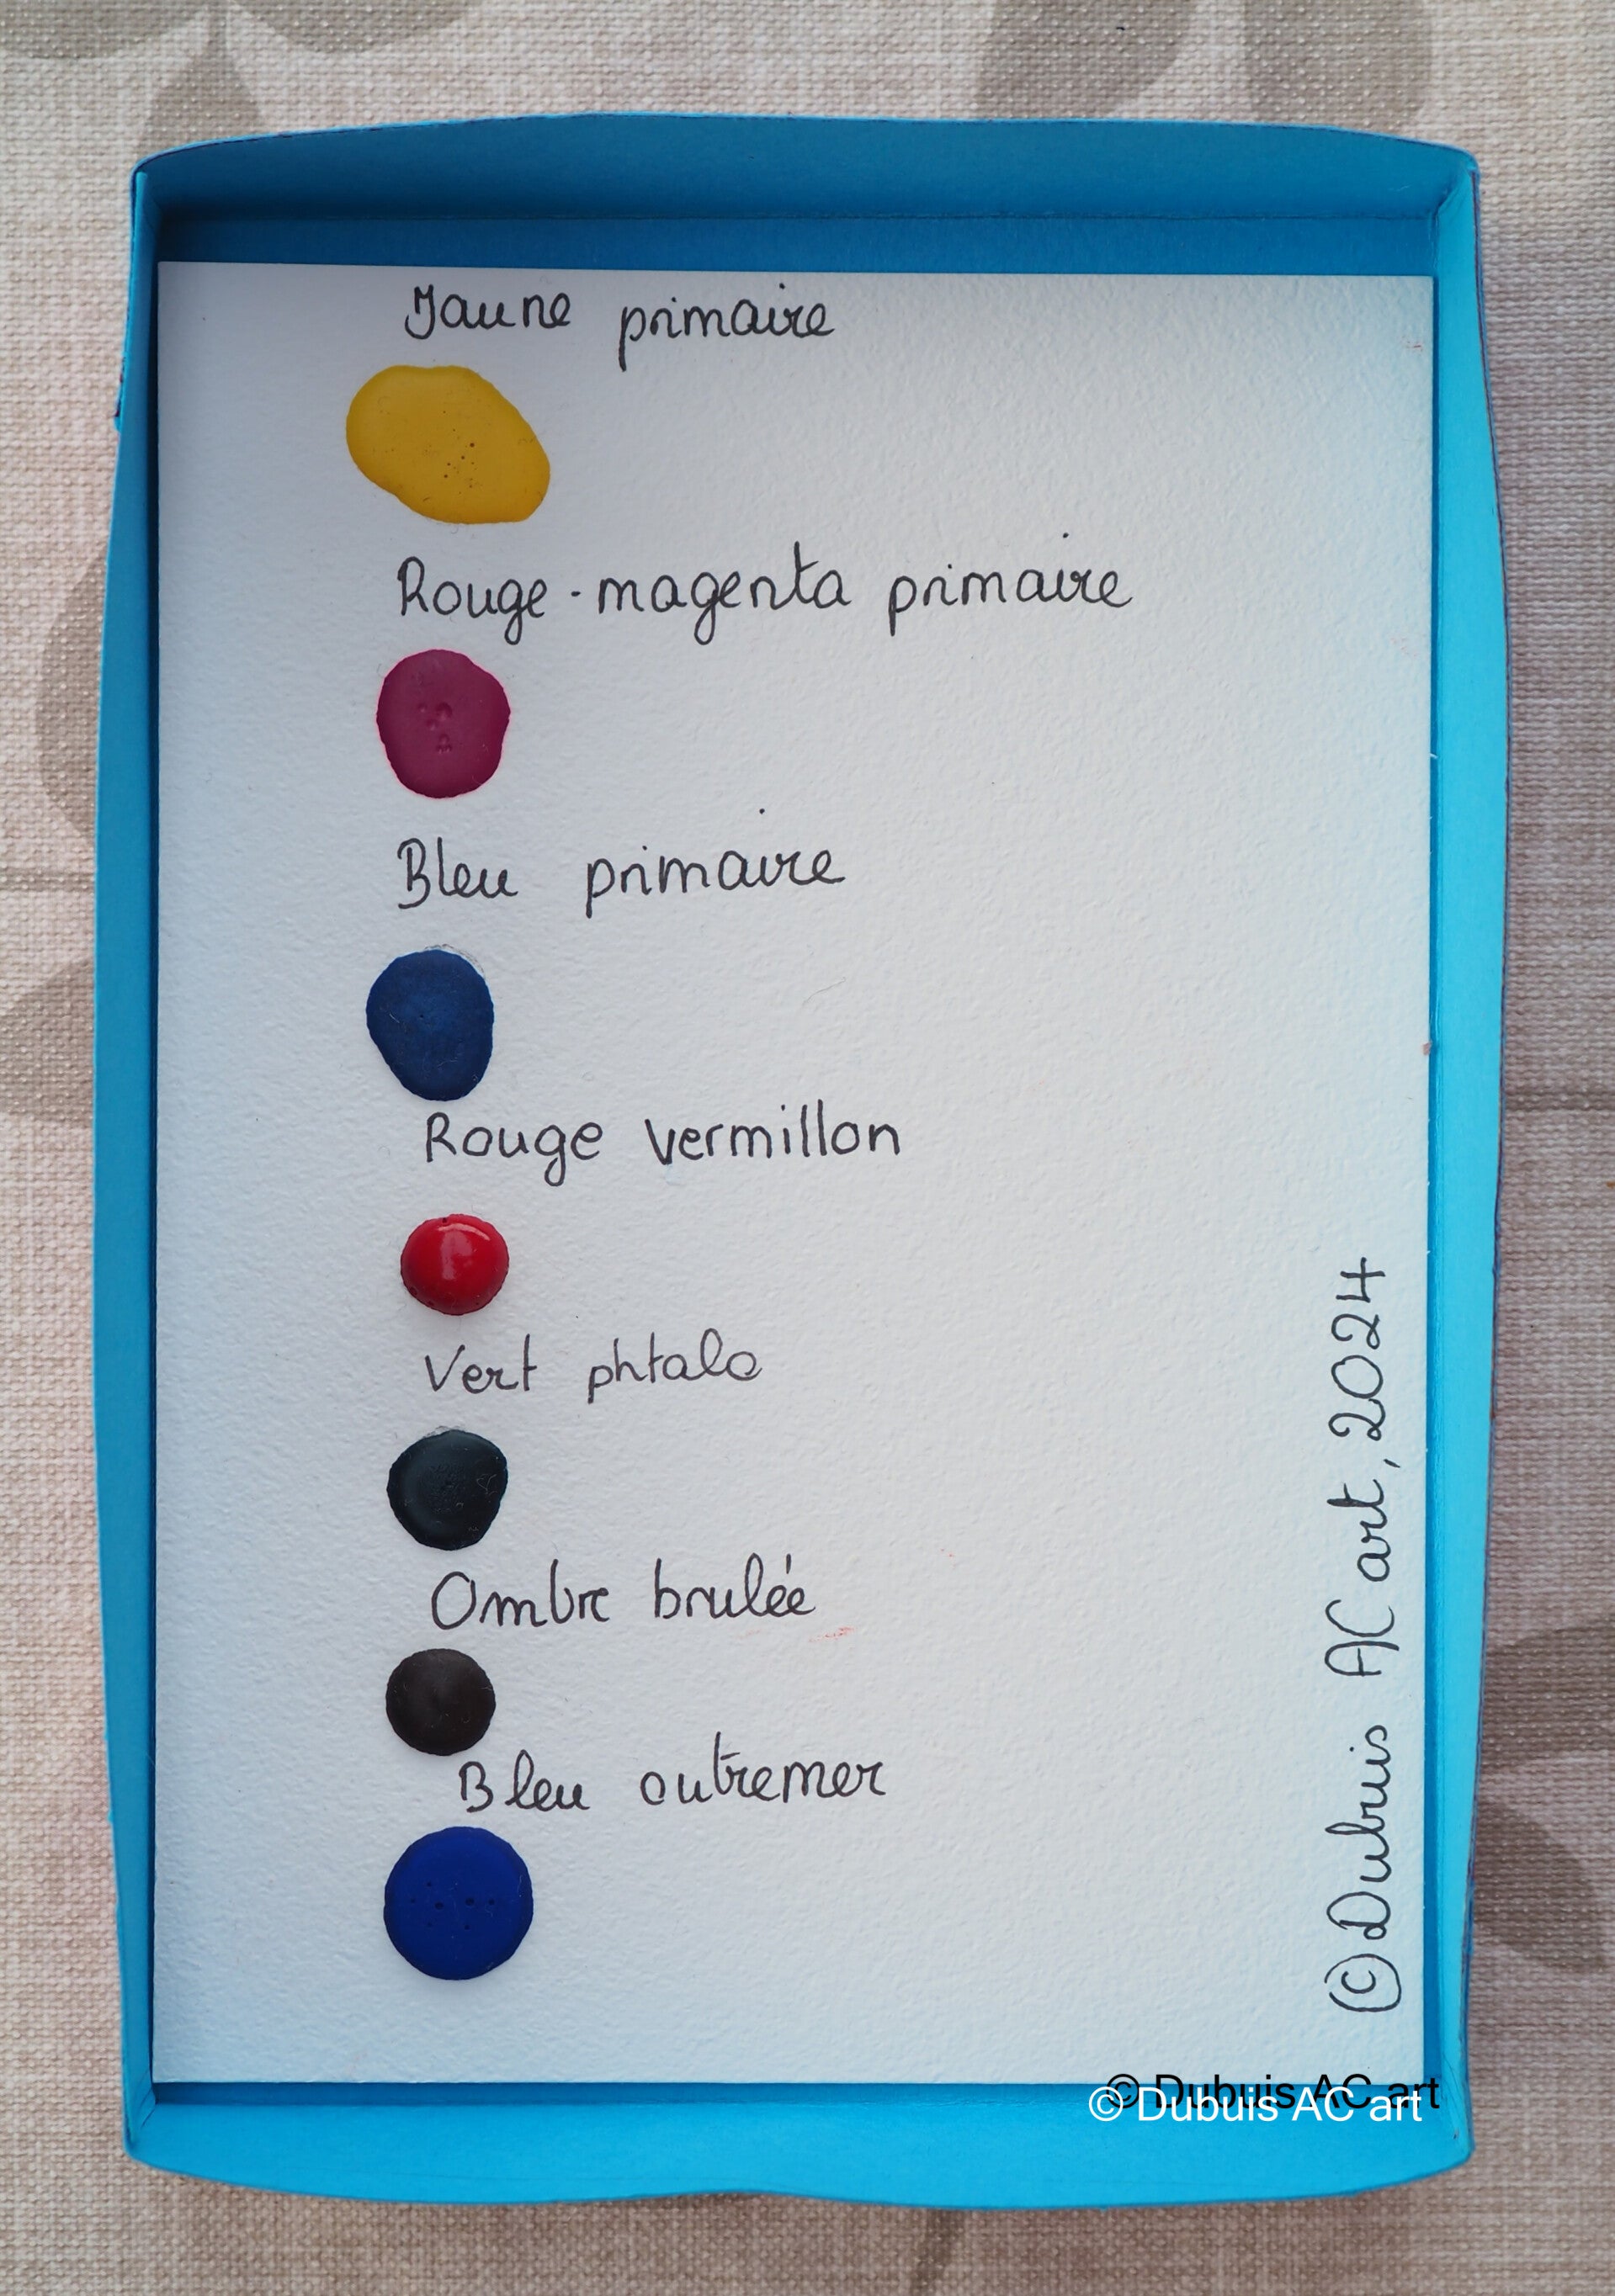 Jaune primaire
Rouge-magenta primaire
Bleu primaire
Rouge vermillon
Vert phtalo
Ombre brulée
Bleu outremer
©Dubuis AC art, 2024
© Dubuis AC art
© Dubuis AC art